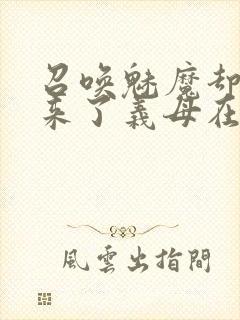 召唤魅魔却
来了義母在
風雲出指間